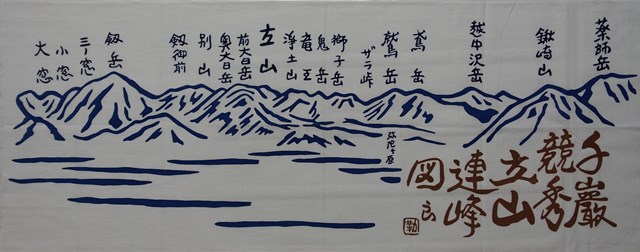 薬師岳
鍬崎山
越中沢岳
鳶岳
鷲岳
ザラ峠
獅子岳
鬼岳
竜王
浄土山
立山
前大日岳
奥大日岳
別山
剱御前
剱岳
三ノ窓
小窓
大窓
弥陀ヶ原
千巖
競秀
立山
連峰
図